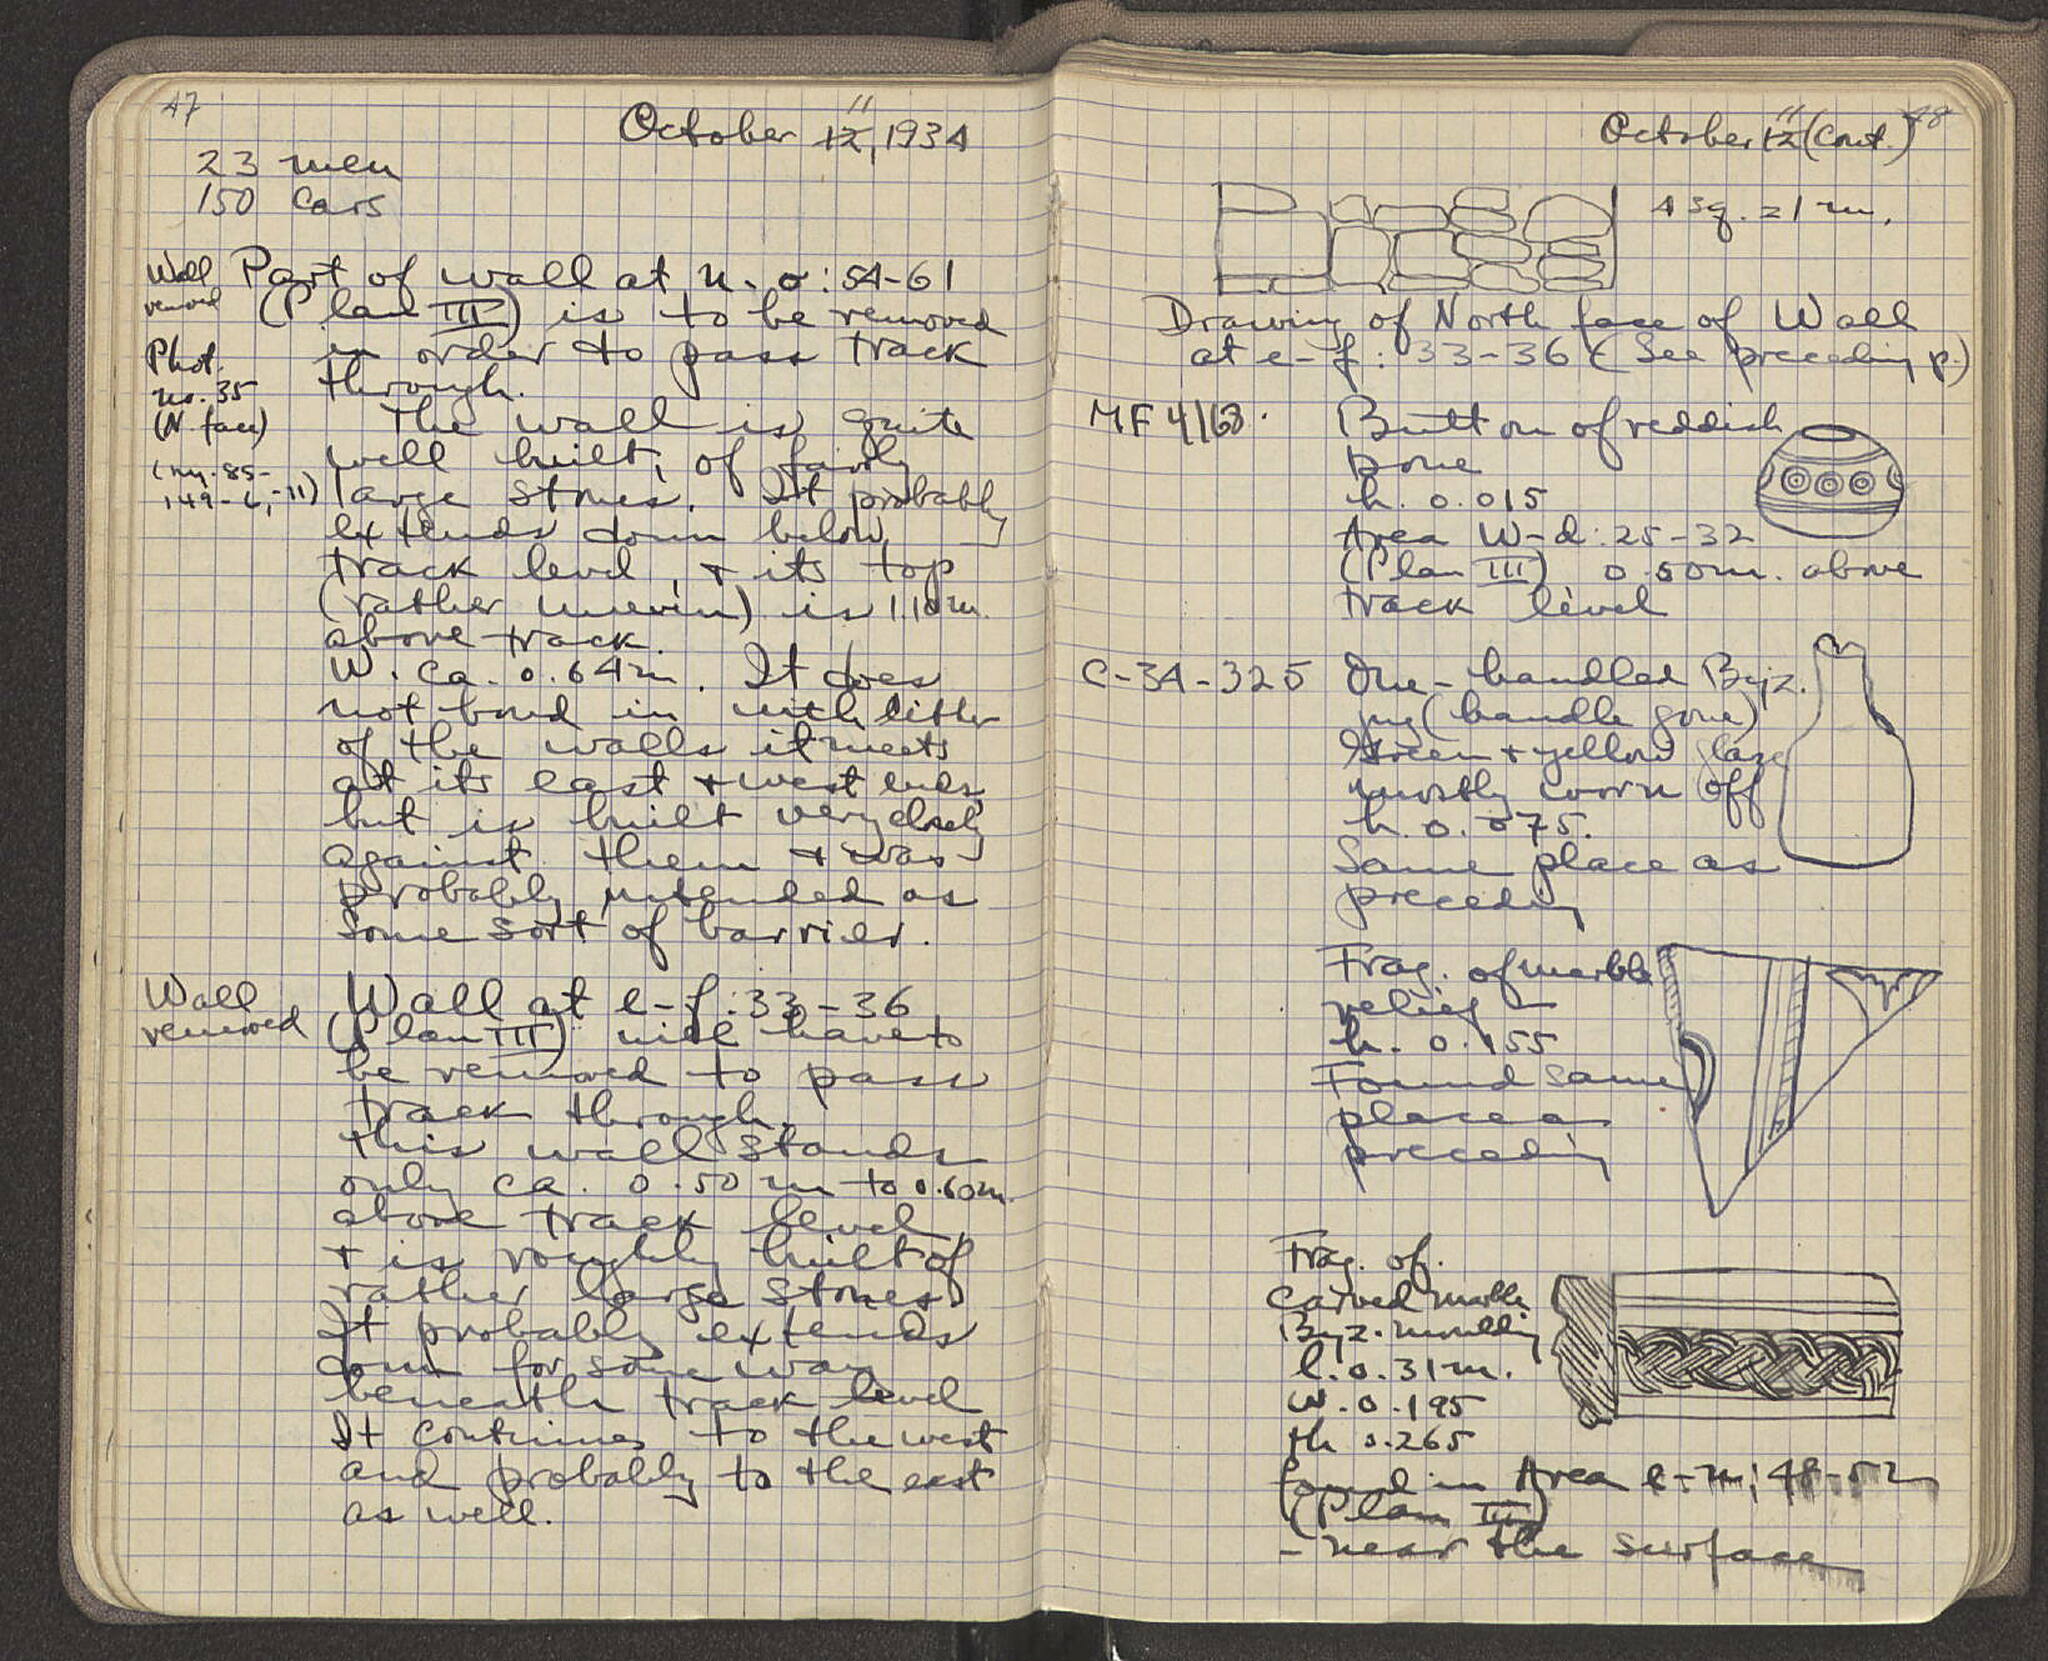 47
October 12, 1934
11
23 men
150 cars
Wall
removed
Part of wall at n-o: 54-61
(Plan III) is to be removed
in order to pass track
through.
Phot.
no. 35
(N. face)
(ny. 85-
149-6, -11)
The wall is quite
well built, of fairly
large stones. It probably
extends down below
track level, + its top
(rather uneven) is 1.10 m.
above track.
W. ca. 0.64 m. It does
not bond in with either
of the walls it meets
at its east + west ends,
but is built very closely
against them + was
probably intended as
some sort of barrier.
Wall
removed
Wall at e-f: 33-36
(Plan III) will have to
be removed to pass
track through.
This wall stands
only ca. 0.50 m to 0.60 m.
above track level,
+ is roughly built of
rather large stones
It probably extends
down for some way
beneath track level
It continues to the west
and probably to the east
as well.
48
October 12 (cont.)
11
4 sq. = 1 m.
Drawing of North face of Wall
at e-f: 33-36 (See preceding p.)
MF 4168.
Button of reddish
bone
h. 0.015
Area W-d: 25-32
(Plan III) 0.50 m. above
track level
C-34-325
One-handled Byz.
jug (handle gone)
Green + yellow glaze
mostly worn off
h. 0.075.
Same place as
preceding
Frag. of marble
relief —
h. 0.155
Found same
place as
preceding
Frag. of
carved marble
Byz. moulding
l. 0.31 m.
w. 0.195
th 0.265
found in Area e-m: 48-52
(Plan III)
- near the surface